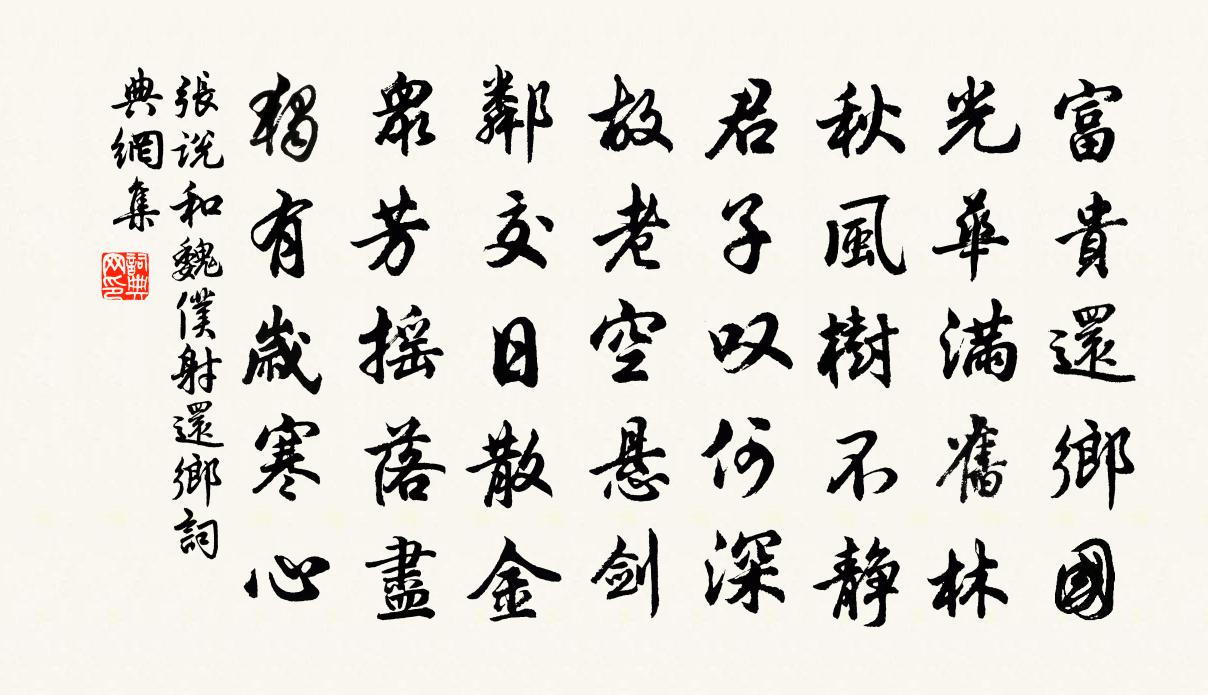 富貴還鄉國
光華滿舊林
秋風樹不靜
君子叹何深
故老空悬劍
鄰交日散金
眾芳搖落盡
獨有歲寒心
張說和魏僕射還鄉詞
典網集
詞典網印